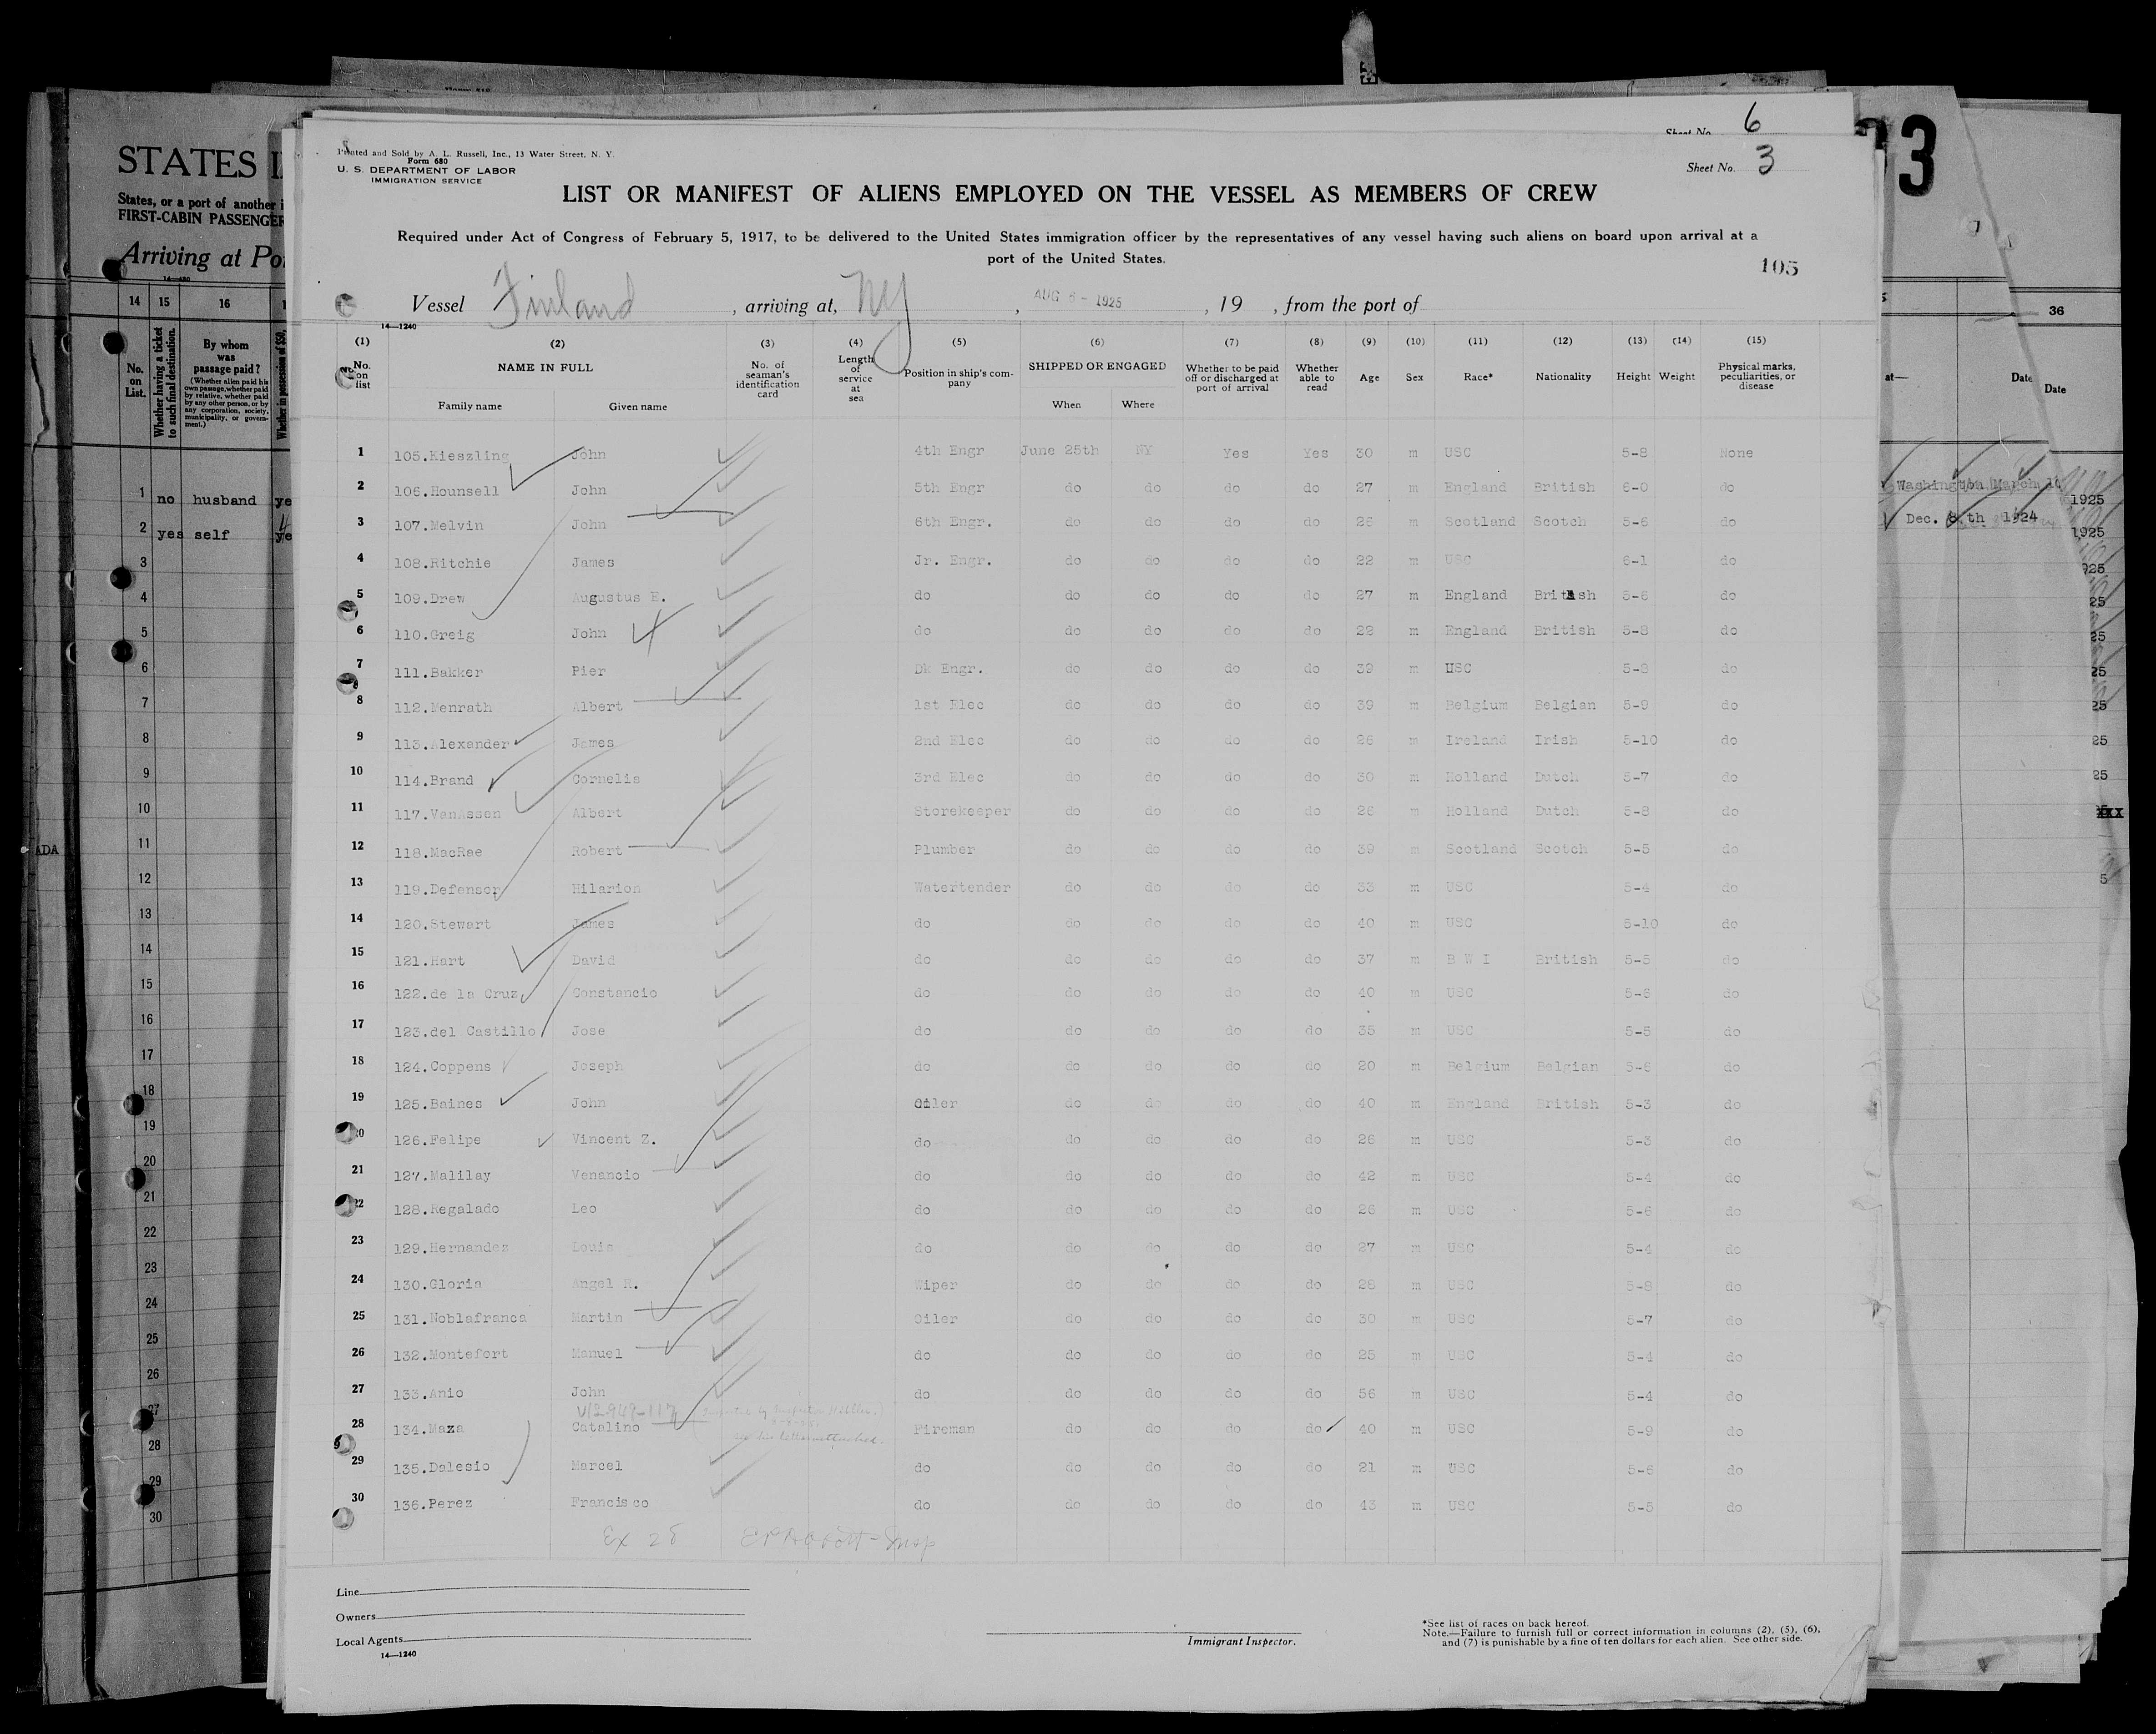 Sheet No. 6
Printed and Sold by A. L. Russell, Inc., 13 Water Street, N. Y.
Form 680
U. S. DEPARTMENT OF LABOR
IMMIGRATION SERVICE
Sheet No. 3
LIST OR MANIFEST OF ALIENS EMPLOYED ON THE VESSEL AS MEMBERS OF CREW
Required under Act of Congress of February 5, 1917, to be delivered to the United States immigration officer by the representatives of any vessel having such aliens on board upon arrival at a
port of the United States.
105
Vessel Finland, arriving at, NY, AUG 6 - 1925, 19 , from the port of
14—1240
(1) (2) (3) (4) (5) (6) (7) (8) (9) (10) (11) (12) (13) (14) (15)
No. on list NAME IN FULL Family name Given name No. of seaman's identification card Length of service at sea Position in ship's company SHIPPED OR ENGAGED When Where Whether to be paid off or discharged at port of arrival Whether able to read Age Sex Race* Nationality Height Weight Physical marks, peculiarities, or disease
1 105.Kieszling John 4th Engr June 25th NY Yes Yes 30 m USC 5-8 None
2 106.Hounsell John 5th Engr do do do do 27 m England British 6-0 do
3 107.Melvin John 6th Engr. do do do do 26 m Scotland Scotch 5-6 do
4 108.Ritchie James Jr. Engr. do do do do 22 m USC 6-1 do
5 109.Drew Augustus E. do do do do do 27 m England British 5-6 do
6 110.Greig John do do do do do 22 m England British 5-8 do
7 111.Bakker Pier Dk Engr. do do do do 39 m USC 5-8 do
8 112.Menrath Albert 1st Elec do do do do 39 m Belgium Belgian 5-9 do
9 113.Alexander James 2nd Elec do do do do 26 m Ireland Irish 5-10 do
10 114.Brand Cornelis 3rd Elec do do do do 30 m Holland Dutch 5-7 do
11 117.VanAssen Albert Storekeeper do do do do 26 m Holland Dutch 5-8 do
12 118.MacRae Robert Plumber do do do do 39 m Scotland Scotch 5-5 do
13 119.Defensor Hilarion Watertender do do do do 33 m USC 5-4 do
14 120.Stewart James do do do do do 40 m USC 5-10 do
15 121.Hart David do do do do do 37 m B W I British 5-5 do
16 122.de la Cruz Constancio do do do do do 40 m USC 5-6 do
17 123.del Castillo Jose do do do do do 35 m USC 5-5 do
18 124.Coppens Joseph do do do do do 20 m Belgium Belgian 5-6 do
19 125.Baines John Oiler do do do do 40 m England British 5-3 do
20 126.Felipe Vincent Z. do do do do do 26 m USC 5-3 do
21 127.Malilay Venancio do do do do do 42 m USC 5-4 do
22 128.Regalado Leo do do do do do 26 m USC 5-6 do
23 129.Hernandez Louis do do do do do 27 m USC 5-4 do
24 130.Gloria Angel R. Wiper do do do do 28 m USC 5-8 do
25 131.Noblafranca Martin Oiler do do do do 30 m USC 5-7 do
26 132.Montefort Manuel do do do do do 25 m USC 5-4 do
27 133.Anio John do do do do do 56 m USC 5-4 do
28 134.Maza Catalino Fireman do do do do 40 m USC 5-9 do
29 135.Dalesio Marcel do do do do do 21 m USC 5-6 do
30 136.Perez Francisco do do do do do 43 m USC 5-5 do
Ex 28
Line
Owners
Local Agents
14—1240
Immigrant Inspector.
*See list of races on back hereof.
Note.—Failure to furnish full or correct information in columns (2), (5), (6),
and (7) is punishable by a fine of ten dollars for each alien. See other side.
STATES
States, or a port of another
FIRST-CABIN PASSENGER
Arriving at
14 15 16
No. on List. Whether having a ticket to such final destination. By whom was passage paid?
(Whether alien paid his own passage, whether paid by relative, whether paid by any other person, or by any corporation, society, municipality, or government.)
1 no husband
2 yes self
3
4
5
6
7
8
9
10
11
12
13
14
15
16
17
18
19
20
21
22
23
24
25
26
27
28
29
30
36
Date
Date
Washington March
1925
Dec. 8 th 1924
1925